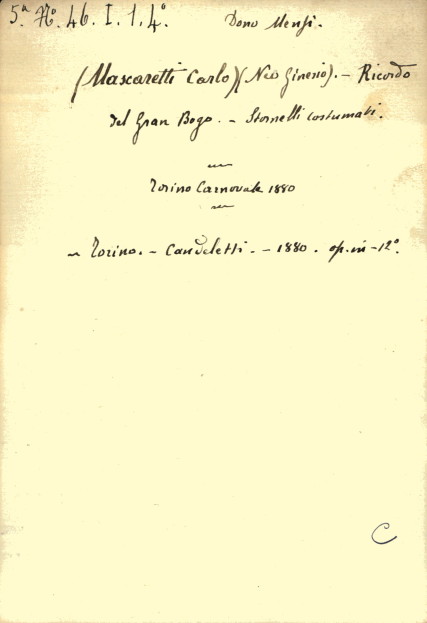 5ª Nº. 46. I. 1. 4º. Dono Mensi.
(Mascaretti Carlo)(Neo Ginesio). – Ricordo
del Gran Bogo. – Stornelli costumati.
Torino Carnovale 1880
– Torino. – Candeletti. – 1880. op. in-12º.
C